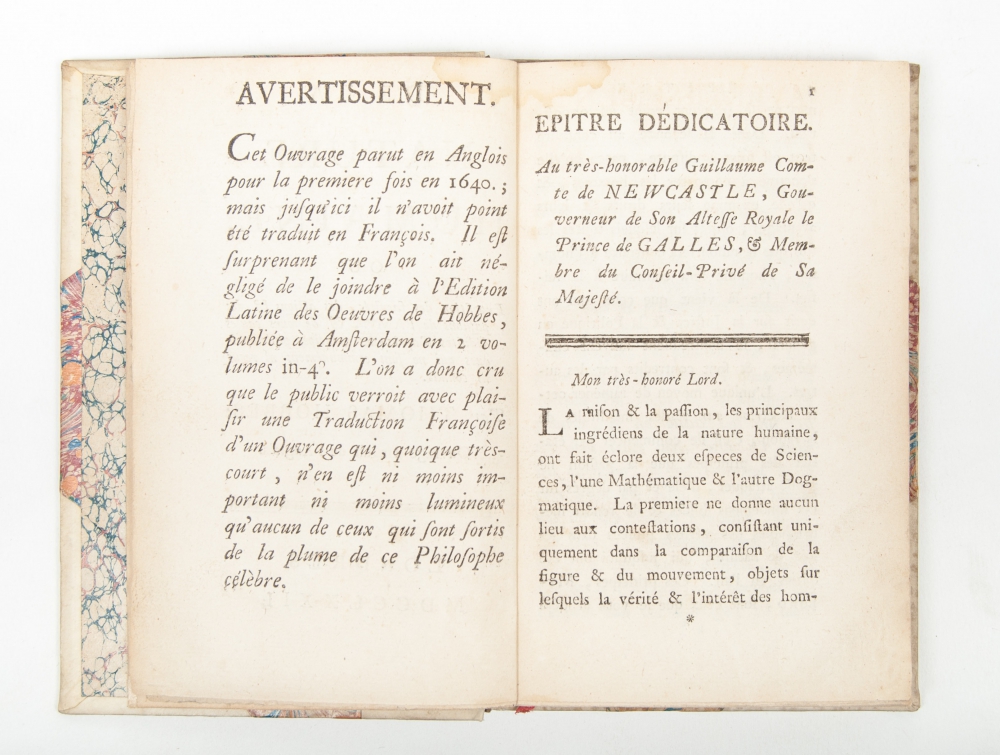 AVERTISSEMENT.
Cet Ouvrage parut en Anglois
pour la premiere fois en 1640.;
mais juſqu'ici il n'avoit point
été traduit en François. Il eſt
ſurprenant que l'on ait né-
gligé de le joindre à l'Edition
Latine des Oeuvres de Hobbes,
publiée à Amſterdam en 2 vo-
lumes in-4°. L'on a donc cru
que le public verroit avec plai-
ſir une Traduction Françoiſe
d'un Ouvrage qui, quoique très-
court, n'en eſt ni moins im-
portant ni moins lumineux
qu'aucun de ceux qui ſont ſortis
de la plume de ce Philoſophe
célèbre.
1
EPITRE DÉDICATOIRE.
Au très-honorable Guillaume Com-
te de NEWCASTLE, Gou-
verneur de Son Alteſſe Royale le
Prince de GALLES, & Mem-
bre du Conſeil-Privé de Sa
Majeſté.
Mon très-honoré Lord.
LA raiſon & la paſſion, les principaux
ingrédiens de la nature humaine,
ont fait éclore deux eſpeces de Scien-
ces, l'une Mathématique & l'autre Dog-
matique. La premiere ne donne aucun
lieu aux conteſtations, conſiſtant uni-
quement dans la comparaiſon de la
figure & du mouvement, objets ſur
leſquels la vérité & l'intérêt des hom-
*